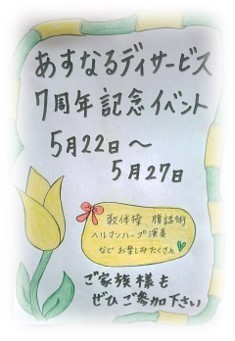 あすなろデイサービス
7周年記念イベント
5月22日〜
5月27日
歌体操 腹話術
ヘルマンハープ演奏
など お楽しみたくさん
ご家族様も
ぜひご参加下さい